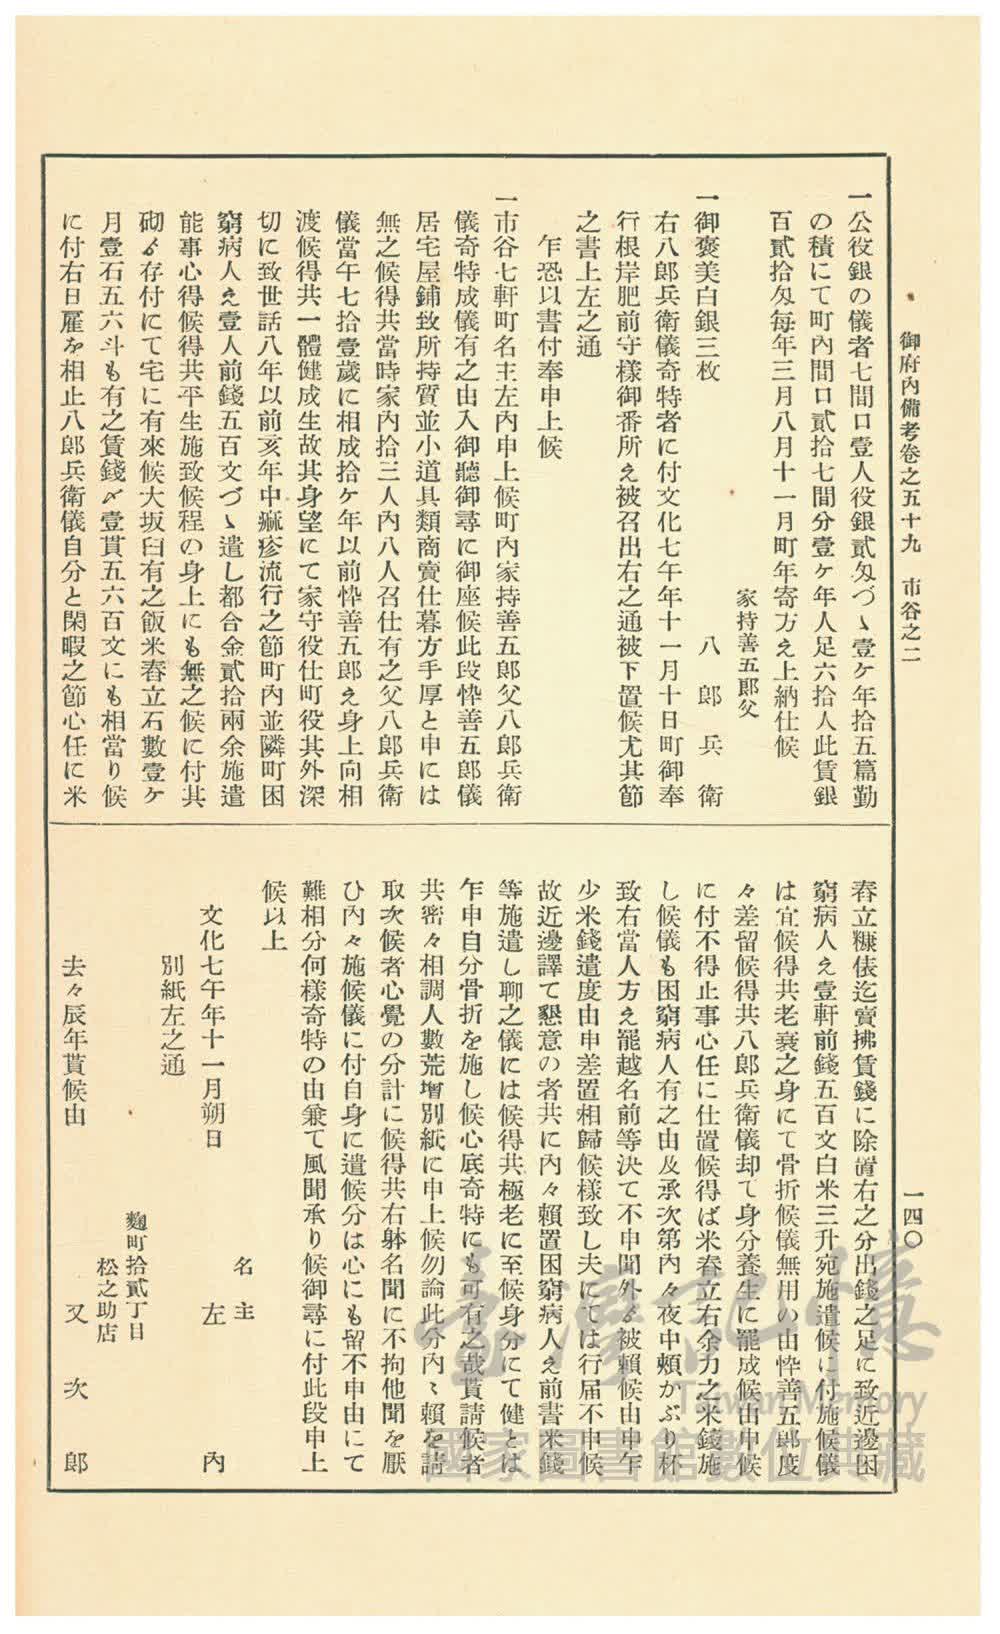 御府內備考卷之五十九　市谷之二
一四〇
一公役銀の儀者七間口壹人役銀貳匁づゝ壹ケ年拾五篇勤
の積にて町內間口貳拾七間分壹ケ年人足六拾人此賃銀
百貳拾匁每年三月八月十一月町年寄方え上納仕候
家持善五郎父
一御褒美白銀三枚　八郎兵衛
右八郎兵衛儀奇特者に付文化七午年十一月十日町御奉
行根岸肥前守樣御番所え被召出右之通被下置候尤其節
之書上左之通
乍恐以書付奉申上候
一市谷七軒町名主左內申上候町內家持善五郎父八郎兵衛
儀奇特成儀有之由入御聽御尋に御座候此段悴善五郎儀
居宅屋鋪致所持質並小道具類商賣仕暮方手厚と申には
無之候得共當時家內拾三人內八人召仕有之父八郎兵衛
儀當午七拾壹歲に相成拾ケ年以前悴善五郎え身上向相
渡候得共一體健成生故其身望にて家守役仕町役其外深
切に致世話八年以前亥年中痲疹流行之節町內並隣町困
窮病人え壹人前錢五百文づゝ遣し都合金貳拾兩余施遣
能事心得候得共平生施致候程の身上にも無之候に付其
砌ゟ存付にて宅に有來候大坂臼有之飯米舂立石數壹ケ
月壹石五六斗も有之賃錢〆壹貫五六百文にも相當り候
に付右日雇を相止八郎兵衛儀自分と閑暇之節心任に米
舂立糠俵迄賣拂賃錢に除置右之分出錢之足に致近邊困
窮病人え壹軒前錢五百文白米三升宛施遣候に付施候儀
は宜候得共老衰之身にて骨折候儀無用の由悴善五郎度
々差留候得共八郎兵衛儀却て身分養生に罷成候由申候
に付不得止事心任に仕置候得ば米舂立右余力之米錢施
し候儀も困窮病人有之由及承次第內々夜中頰かぶり杯
致右當人方え罷越名前等決て不申聞外ゟ被賴候由申乍
少米錢遣度由申差置相歸候樣致し夫にては行屆不申候
故近邊譯て懇意の者共に內々賴置困窮病人え前書米錢
等施遣し聊之儀には候得共極老に至候身分にて健とは
乍申自分骨折を施し候心底奇特にも可有之哉貰請候者
共密々相調人數荒增別紙に申上候勿論此分內々賴を請
取次候者心覺の分計に候得共右躰名聞に不拘他聞を厭
ひ內々施候儀に付自身に遣候分は心にも留不申由にて
難相分何樣奇特の由兼て風聞承り候御尋に付此段申上
候以上
名主
文化七午年十一月朔日　左內
別紙左之通
麴町拾貳丁目
松之助店
去々辰年貰候由　又次郎
臺灣記憶
Taiwan Memory
國家圖書館數位典藏